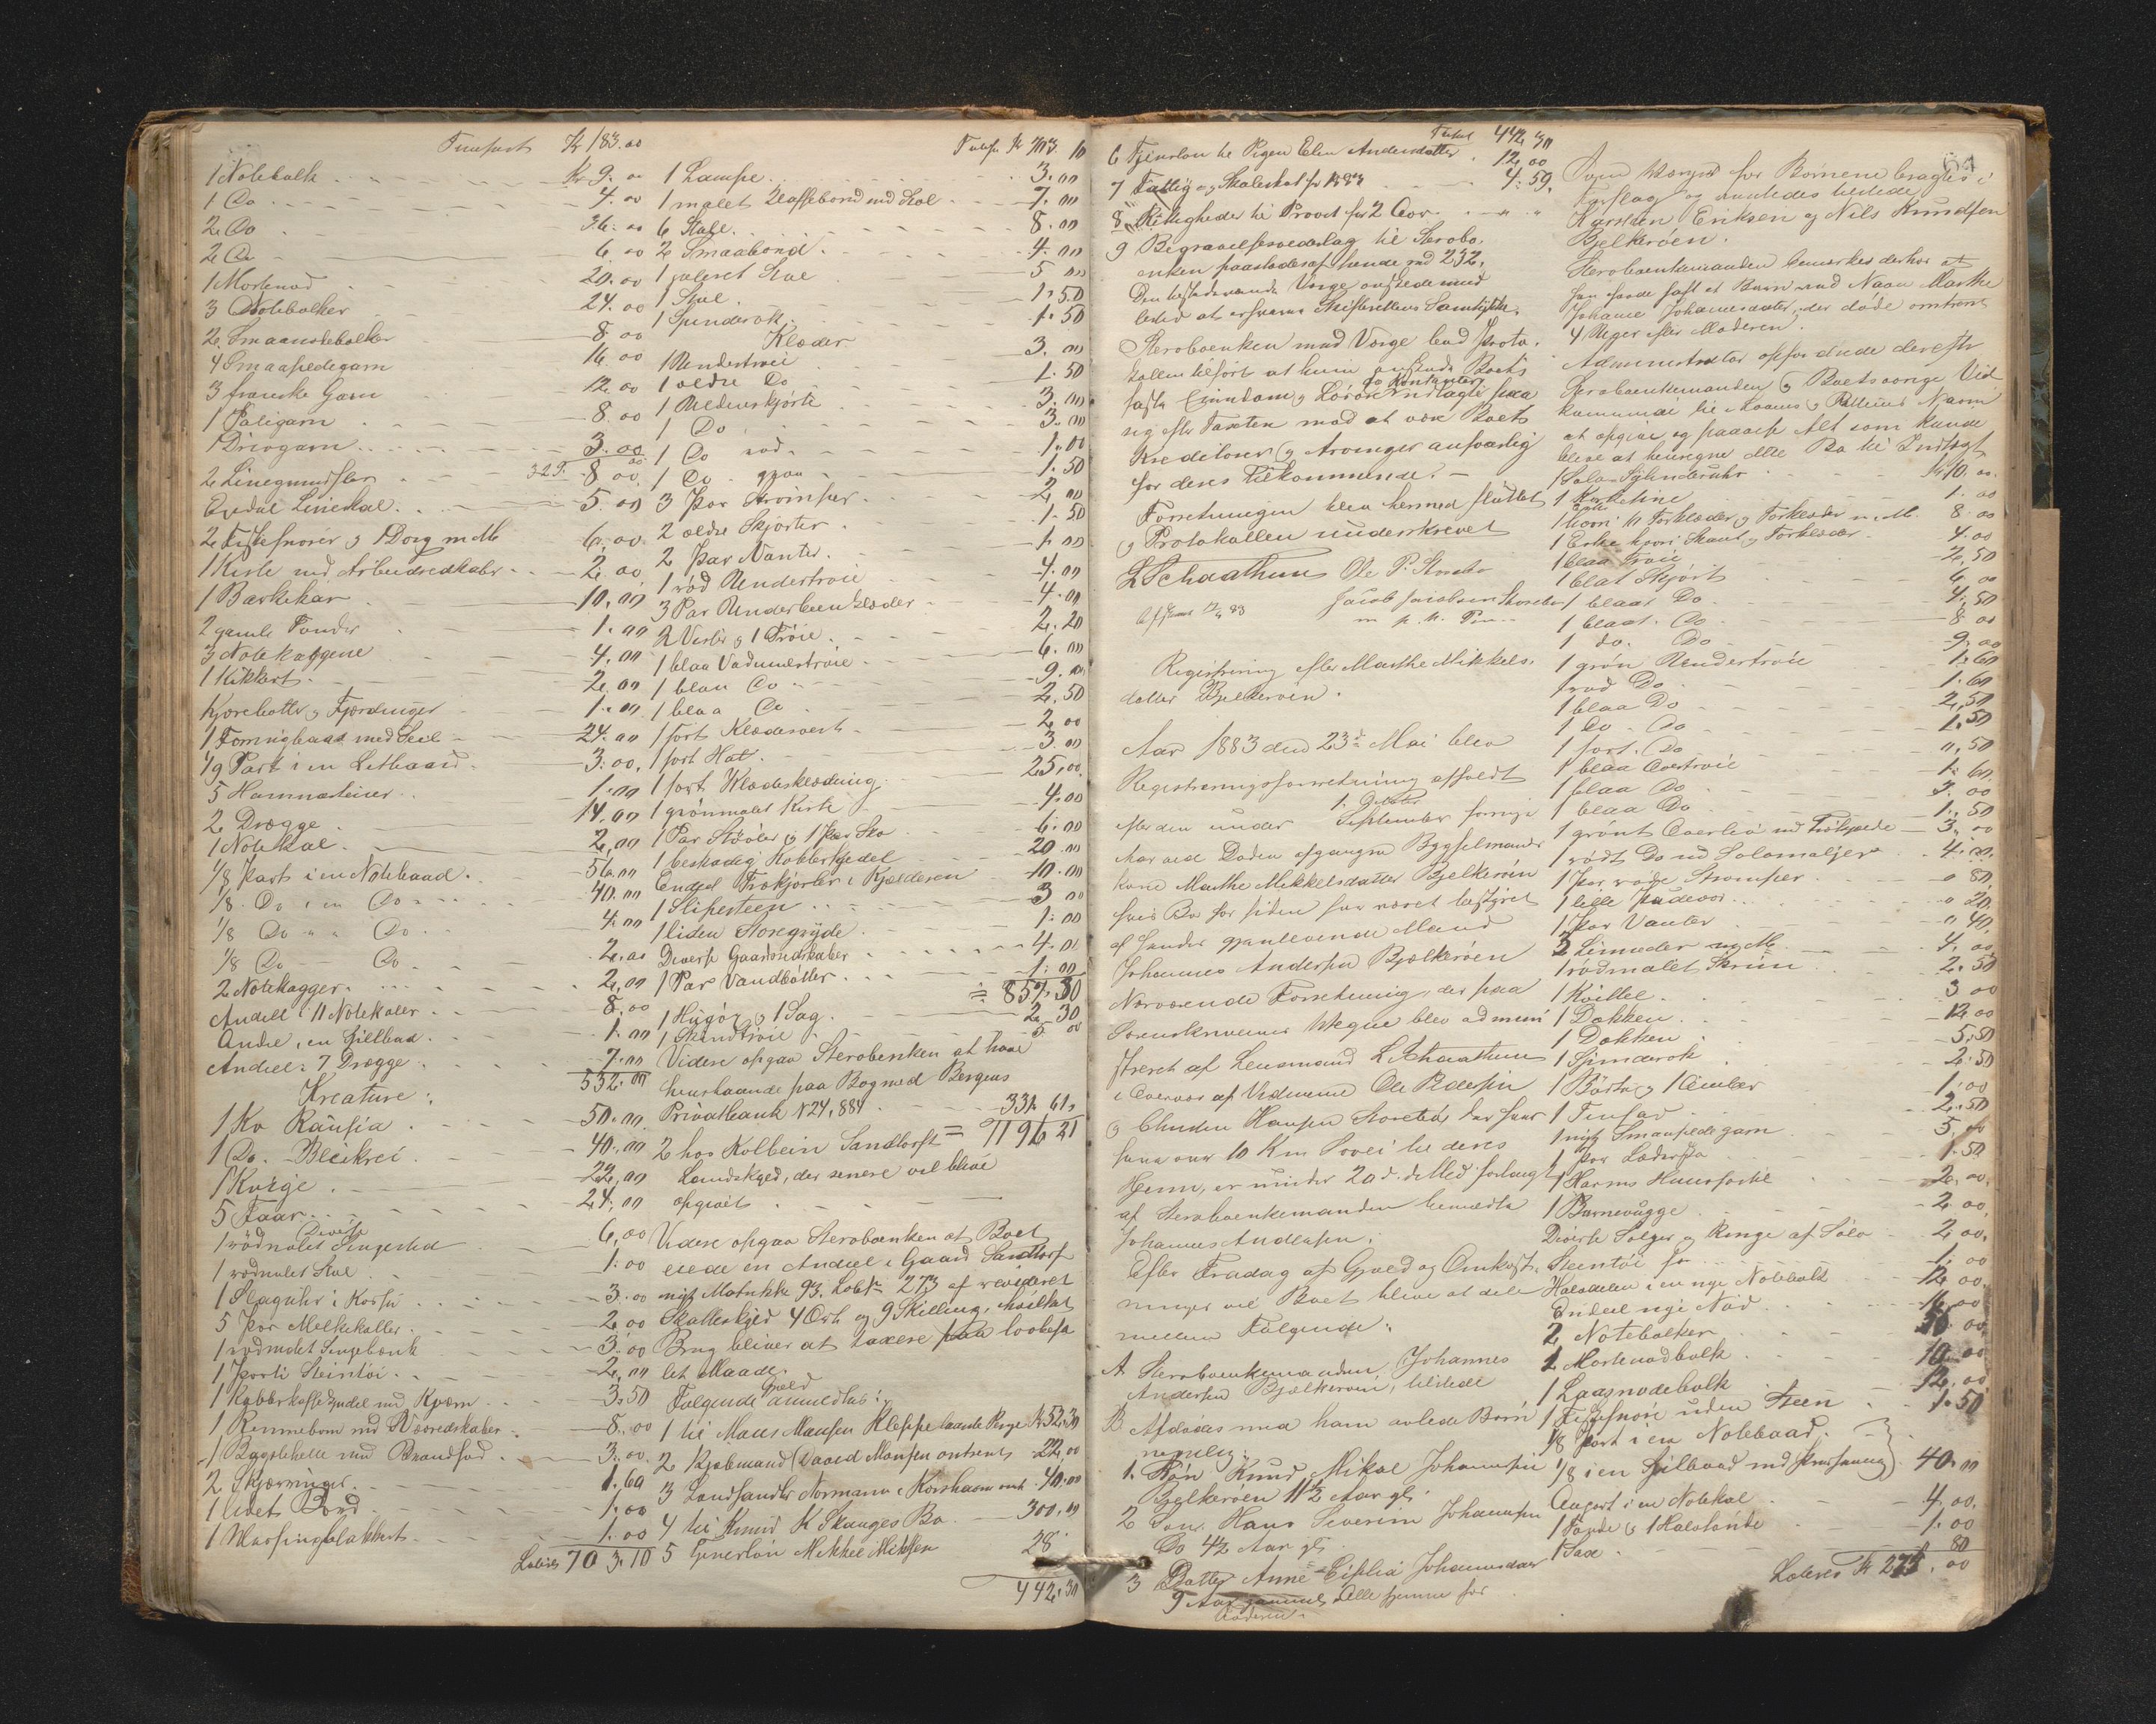 Transport Kr 183.00
1 Notebolk Kr 9.00
1 Do 4.00
2 Do 36.00
2 Do 6.00
1 Mortenod 20.00
3 Notebolker 24.00
2 Smaanotebolker 8.00
4 Smaasildegarn 16.00
3 franske Garn 12.00
1 Paligarn 8.00
1 Drivgarn 3.00
329.00
2 Linegnundster 8.00
Endel Linekal 5.00
2 Fiskesnører & 1 Dorg m M 6.00
1 Kiste med Arbeidsredskaber 2.00
1 Barkekar 10.00
2 gamle Tønder 1.00
3 Notekaggene 4.00
1 Kikkert 2.00
Kjørebøtter & Fjerdinger 1.00
1 Færingbaad med Seil 24.00
1/9 Part i en Letbaad 3.00
5 Hamnesteiner 1.00
2 Drægge 14.00
1 Notekal 2.00
1/8 Part i en Notebaad 56.00
1/8 Do i en Do 40.00
1/8 Do " " Do 4.00
1/8 Do — Do 2.00
2 Notekagger 2.00
Andeel i 11 Notekaler 8.00
Andel i en Spilbaad 1.00
Andeel i 7 Drægge 7.00
532.00
Kreature:
1 Ko Rausia 50.00
1 Do. Bleikrei 40.00
1 Kvige 22.00
5 Faar 24.00
Diverse
1 rødmalet Sengested 6.00
1 rødmalet Stol 1.00
1 Slaguhr i Kasse 3.00
5 Par Melkekoller 2.00
1 rødmalet Sengebænk 3.00
1 Parti Steintøi 2.00
1 Kobberkaffekjedel med Kværn 3.50
1 Rennebom med Vævredskaber 8.00
1 Bagstehelle med Brandjød 3.00
2 Skjæringer 1.60
1 lidet Bord 1.00
1 Messingplakkert 1.00
Lateris 703.10
Transp Kr 703 10
1 Lampe 3.00
1 malet Klaffebord med Stol 7.00
6 Stole 8.00
2 Smaabord 4.00
1 poleret Stol 5.00
1 Stol 1.50
1 Spinderok 1.50
Klæder
1 Undertrøie 3.00
1 ældre Do 1.50
1 Uldenskjorte 3.00
1 Do 3.00
1 Do rød 1.00
1 Do graa 1.50
3 Par Strømper 2.00
2 ældre Skjorter 1.50
2 Par Vanter 1.00
1 rød Undertrøie 4.00
3 Par Underbeenklæder 4.00
2 Veste & 1 Trøie 2.20
1 blaa Vadmelstrøie 6.00
1 blaa Do 9.00
1 blaa Do 2.50
1 sort Klædesvest 2.00
1 sort Hat 3.00
1 sort Klædesklædning 25.00
1 grønmalet Kiste 4.00
1 Par Støvler & 1 Par Sko 6.00
1 beskadig Kobberkjedel 20.00
Endel Trækjørler i Kjælderen 10.00
1 Slipesteen 3.00
1 liden Storegryde 1.00
Diverse Gaardsredskaber 4.00
1 Par Vandbøtter 1.00
= 857.30
1 Hugøx & 1 Sag 2.30
1 Skindtrøie 5.00
Videre opgav Sterboenken at have
henstaaende paa Bog med Bergens
Privatbank N 24,884 331.61
= 1196 21
2 hos Kolbein Sandtorf
Landskyld, der senere vil blive
opgivet
Videre opgav Sterboenken at Boet
eiede en Andeel i Gaard Sandtorf
nyt Matrikk 93. Lobe N 273 af revideret
Skatteskyld 4 Ort og 9 Skilling, hvilket
Brug bliver at taxere paa lovbefa
let Maade.
Følgende Gjeld anmeldtes:
1 til Mons Monsen Kleppe laante Penge Kr 52.30
2 Kjøbmand David Monsen omtrent 22.00
3 Landhandler Normann i Korshavn omt 40.00
4 til Knud K Skauges Bo 300.00
5 Tjenerløn Mikkel Mikkelsen 28
442.30
Trspt 442,30
6 Tjenerløn til Pigen Elen Andersdatter 12.00
7 Fattig og Skoleskat for 1883 4.59
8 Rettigheder til Provst for 2 Aar " "
9 Begravelsesvederlag til Sterbo,
enken paastodes af hende med 232,
Den tilstedeværende Værge ansaa imid
lertid at erhverve Skifterettens Samtykke.
Sterboenken med Værge lod Proto,
kollen tilført at hun ønskede Boets
faste Eiendom & Løsøre & Kontanter udlagte paa
sig efter Taxten mod at være Boets
Kreditorer & Arvinger ansvarlig
for deres Tilkommende. —
Forretningen blev hermed sluttet
& Protokollen underskrevet
L Schaathun Ole P. Storebø
Jacob Jacobsen Storebø
m p. P.
Registrering efter Marthe Mikkels,
datter Bjelkerøen.
Aar 1883 den 23de Mai blev
Registreringsforretning afholdt
efter den under 1. October September forrige
Aar ved Døden afgangne Bygselmands
kone Marthe Mikkelsdatter Bjelkerøen
hvis Bo for siden har været bestyret
af hendes gjenlevende Mand
Johannes Andersen Bjelkerøen
Nærværende Forretning, der paa
Sorenskriverens Vegne blev admini
streret af Lensmand L Schaathun
i Overvær af Vidnerne Ole Pedersen
& Anders Hansen Storebø har hver
især over 10 Km Sovei til deres
Hjem, er under 20 d. d. Md forlangt
af Sterboenkemanden bemeldte
Johannes Andersen.
Efter Fradrag af Gjæld og Omkost,
ninger vil Boet blive at dele
mellem Følgende:
A Sterboenkemanden Johannes
Andersen Bjelkerøen, tilstede
B Afdødes med ham avlede Børn
nemlig:
1. Søn Knud Mikal Johannesen
Bjelkerøen 11 1/2 Aar gl.
2 Søn. Hans Severin Johannesen
Do 4 1/2 Aar gl.
3 Datter Anne Ciplia Johannesdatter
9 Aar gammel Alle hjemme hos
Faderen.
Som Værger for Børnene bragtes i
Forslag og anmeldtes tilstede
Karsten Eriksen og Nils Knudsen
Bjelkerøen.
Sterboenkemanden bemærkes derhos at
han havde havt et Barn ved Navn Marthe
Johanne Johannesdatter, der døde omtrent
4 Uger efter Moderen.
Administrator opfordrede derefter
Sterboenkemanden & Boets øvrige Ved
kommende til Troens & Rettens Navn
at opgive og paavise Alt som kunde
blive at henregne dette Bo til Indtægt
1 Sølv Sylinderuhr Kr 10.00
1 Kastetine 1.00
1 Eske hvori 11 Forklæder & Tørklæder m. M. 8.00
1 Eske hvori Skaut & Forklæder 4.00
1 blaa Trøie 2,50
1 blaat Skjørt 6.00
1 blaat Do 4.50
1 blaat. Do 8.00
1 do. Do 9.00
1 grøn Undertrøie 1.60
1 rød Do 1.60
1 blaa Do 2,50
1 Do - Do 1.50
1 sort. Do 0,50
1 blaa Overtrøie 1.60
1 blaa Do 3.00
1 blaa Do 1.50
1 grønt Overliv med Trøspede 3.00
1 rødt Do med Sølvmaljer 4.00
1 Par røde Strømper 0 80
1 lille Pudevar 0 20
1 Par Vanter 0 40
3 Linneder og M 4.00
1 rødmalet Skrin 2.50
1 Kvittel 3 00
1 Dokken 12 00
1 Dokken 5.50
1 Spinderok 2.50
1 Bøtte & 1 Ambar 1.00
1 Tinfad 2.50
1 nyt Smaasildegarn 5.00
1 Par Lædersko 1.50
1 Harms Huuspostil 2.00
1 Barnevugge 2.00
Diverse Sølger & Ringe af Sølv 2.00
Steentøi for 1.00
Halvdelen i en nye Notebolk 12 00
Endeel nye Nød 16.00
2 Notebolker 30 00
2 Mortenodbolk 10.00
1 Laasnodebolk 12.00
1 Fiskesnøre uden Steen 1.50
1/8 Part i en Notebaad.
1/8 i en Spilbaad med Presenning } 40.00
Anpart i en Notekal 4.00
1 Tønde & 1 Halvtønde 1.00
1 Sax 80
Lateris Kr 275.00